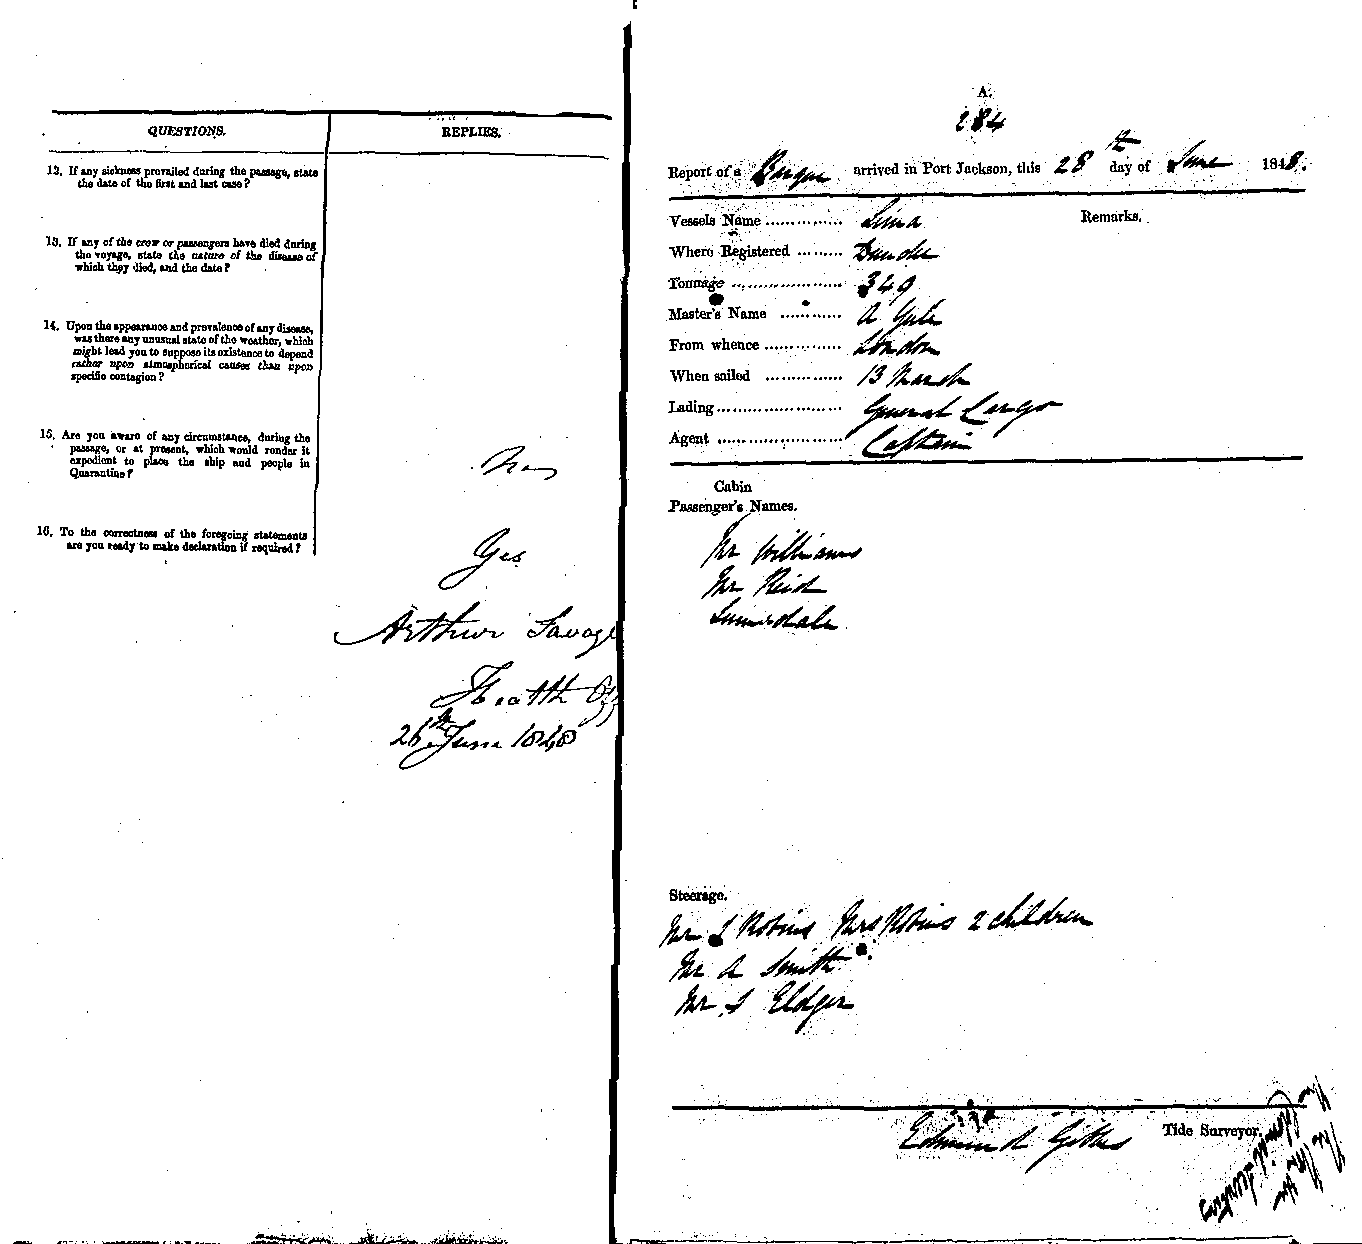 QUESTIONS.
REPLIES.
12. If any sickness prevailed during the passage, state
the date of the first and last case?
13. If any of the crew or passengers have died during
the voyage, state the nature of the disease of
which they died, and the date?
14. Upon the appearance and prevalence of any disease,
was there any unusual state of the weather, which
might lead you to suppose its existence to depend
rather upon atmospherical causes than upon
specific contagion?
15. Are you aware of any circumstance, during the
passage, or at present, which would render it
expedient to place the ship and people in
Quarantine?
16. To the correctness of the foregoing statements
are you ready to make declaration if required?
Yes
Arthur Savage
Health Off
26th June 1848
A.
284
Report of a Barque arrived in Port Jackson, this 28th day of June 1848.
Vessels Name
Remarks.
Where Registered Dundee
Tonnage 349
Master's Name A
From whence London
When sailed 13 March
Lading General Cargo
Agent Captain
Cabin
Passenger's Names.
Mr Williams
Mr Reid
Steerage.
Mr J Robins Mrs Robins 2 children
Mr A Smith
Mr J Eldger
Edmund
Tide Surveyor.